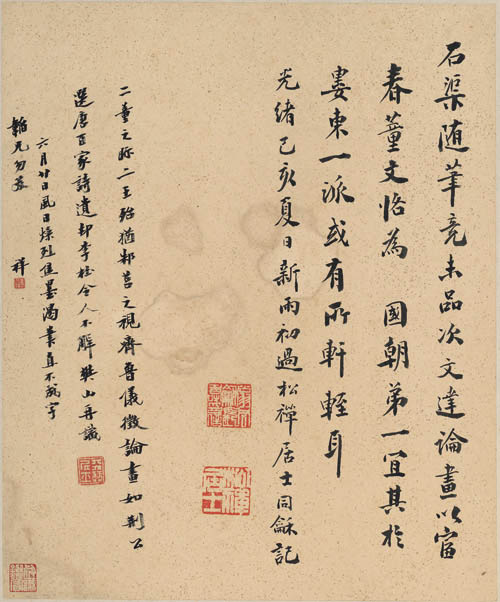 石渠随筆竟未品次文達論畫以富
春董文恪為 國朝弟一宜其於
婁東一派或有所軒輊耳
光緒己亥夏日新雨初過松禪居士同龢記
二董之眎二王殆猶邾莒之視齊魯儀徵論畫如荆公
選唐百家詩遺却李杜令人不解樊山再識
六月廿日風日燥烈佳墨渴書直不成字
韜兄勿哂 祥
松禪居士